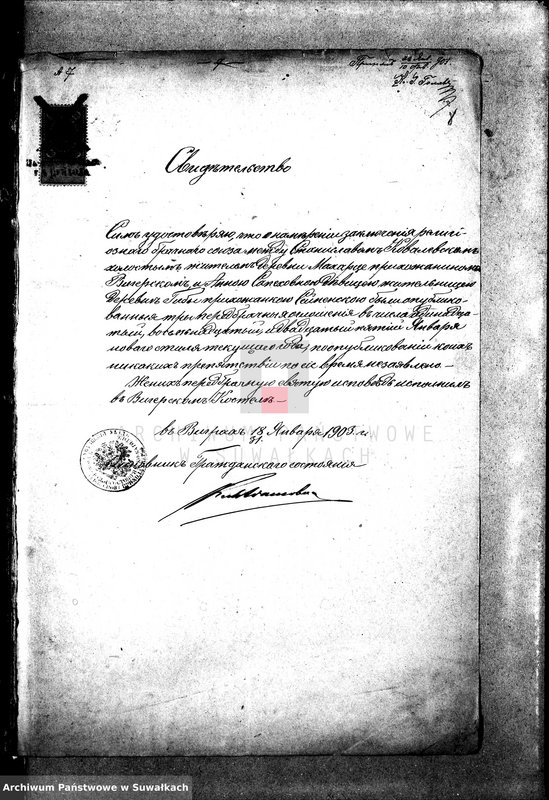 Свидѣтельство
Симъ удостовѣряю, что о намѣреніи заключенія религі-
ознаго брачнаго союза между Станиславомъ Ковалевскимъ
холостымъ жителемъ деревни Махарце прихожаниномъ
Вигерскимъ, и Анною дѣвицею жительницею
деревни Гибы прихожанкою Сейненскою были опублико-
ваны три предбрачныя оглашенія въ числа
восемнадцатый, и двадцатый пятый Января
новаго стиля текущаго года, по опубликованіи коихъ
никакихъ препятствій по сіе время незаявлено.-
Женихъ предбрачную святую исповѣдь исполнилъ
въ Вигерскомъ Костелѣ.-
въ Виграхъ 18/31 Января 1903 г.
Чиновникъ Гражданскаго состоянія
ARCHIWUM PAŃSTWOWE
W SUWAŁKACH
Archiwum Państwowe w Suwałkach